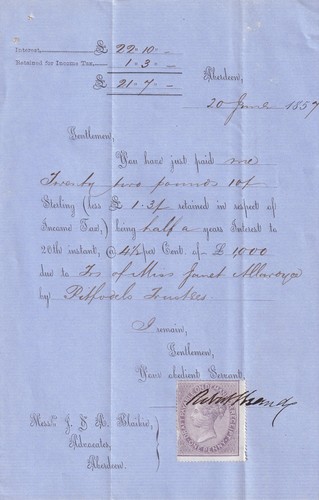 Interest, £ 22 . 10 . –
Retained for Income Tax, 1 . 3 . –
£ 21 . 7 . –
Aberdeen,
20 June 1857
Gentlemen,
You have just paid me
Twenty two pounds 10/-
Sterling (less £ 1.3/- retained in respect of
Income Tax,) being half a years Interest to
20th instant, @ 4½ per Cent. of £ 1,000
due to Trs of Miss Janet
by Pitfodels Trustees
I remain,
Gentlemen,
Your obedient Servant,
Messrs J. & A. Blaikie,
Advocates,
Aberdeen.
ONE PENNY